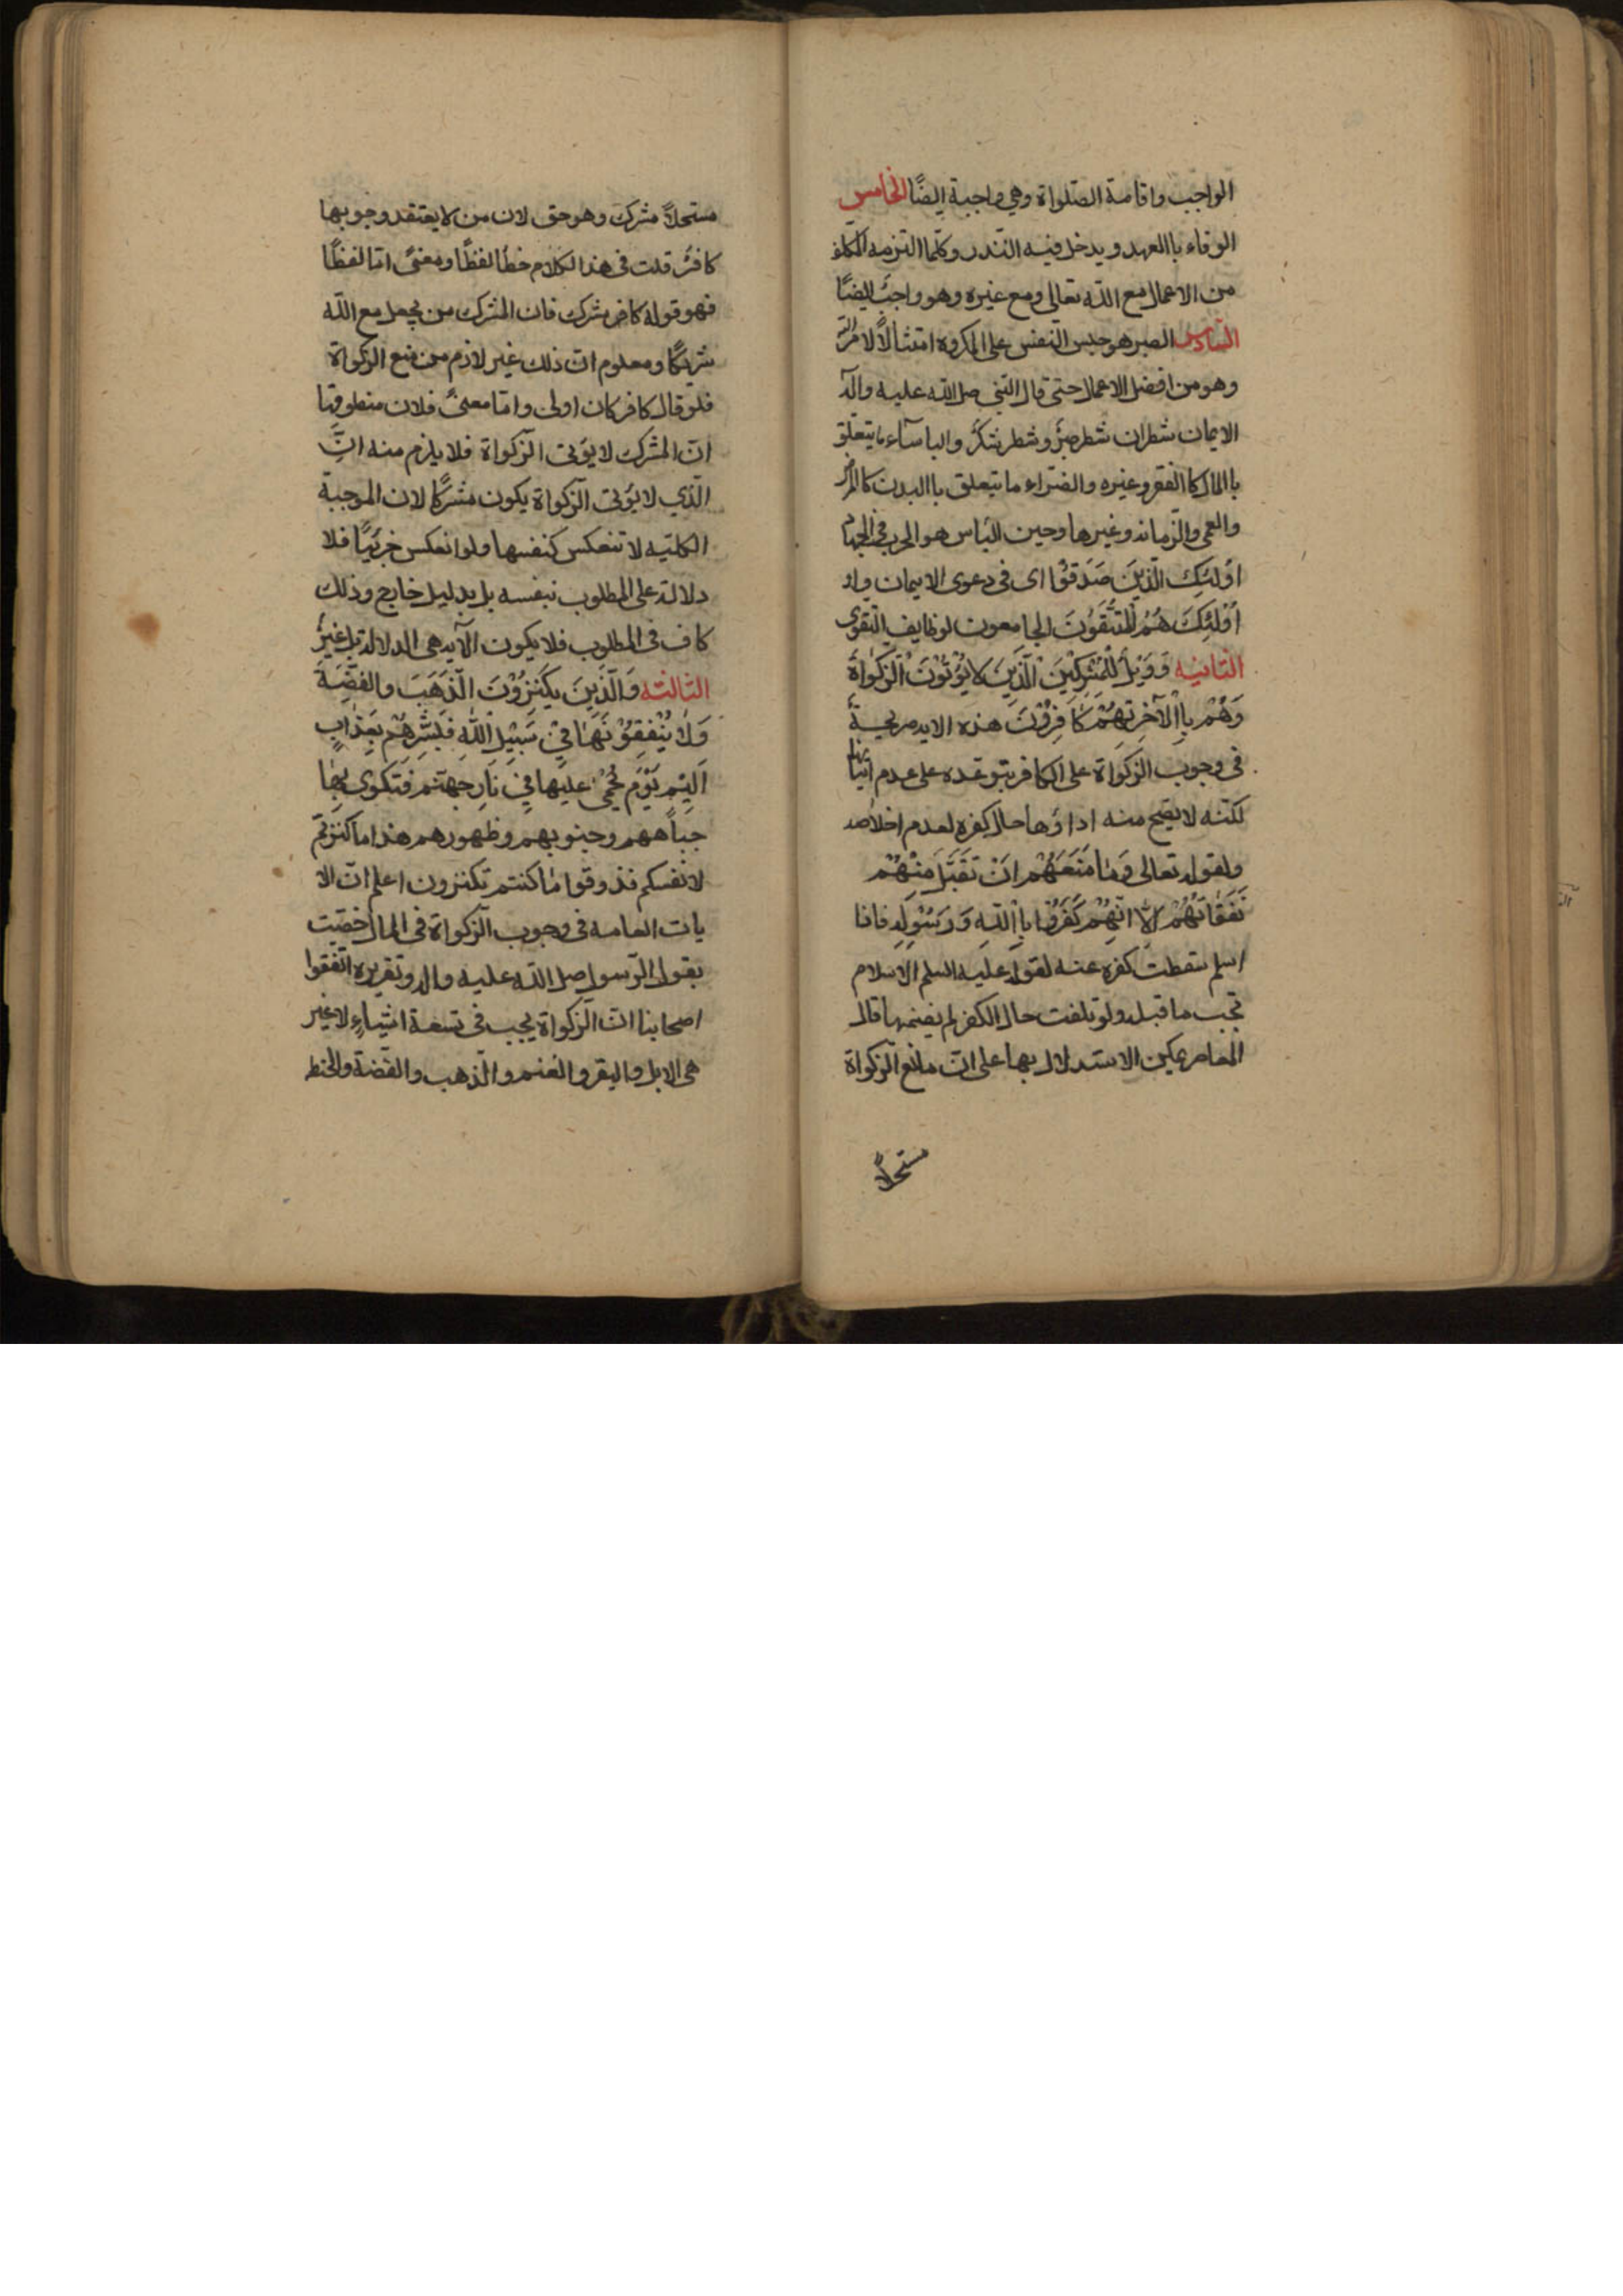 الواجب واقامة الصّلواة وهي واجبة ايضًا الخامس
الوفاء باالعهد ويدخل فيه النّذر وكلّما التزمه المكلف
من الاعمال مع اللّه تعالى ومع غيره وهو واجب ايضًا
السّادس الصبر هو حبس النفس على المكروه امتثالاً لامر اللّه
وهو من افضل الاعمال حتى قال النّبي صل اللّه عليه وآله
الايمان شطران شطر صبرٌ وشطر شكرٌ والباسآء ما يتعلّق
باالمال كاالفقر وغيره والضرّاء ما يتعلق باالبدن كالمرض
والعمى والزّمانه وغيرها وحين البأس هو الحرب في الجهاد
اُولئِكَ الَّذِينَ صَدَقُوْا اى فى دعوى الايمان و
اُوْلئِكَ هُمُ الْمُتَّقُوْنَ الجامعون لوظايف التّقوى
الثانيه وَوَيْلٌ لِلْمُشْرِكِيْنَ الَّذِيْنَ لا يُؤْتُوْنَ الزَّكوٰاةَ
وَهُمْ بِاالآخِرَتِهُمْ كٰافِرُوْنَ هذه الايه صريحة
فى وجوب الزكواة على الكافر بتوعّده على عدم اتيانها
لكنّه لا يصّح منه اداؤها حال كفره لعدم اخلاصه
ولقوله تعالى وَمٰا مَنَعَهُمْ اَنْ تُقَبَّلَ مِنْهُمْ
نَفَقٰاتُهُمْ اِلاّٰ انّهُمْ كَفَرُوا بِاْاللّهِ وَرَسُوْلِهِ فاذا
اسلم سقطت كفره عنه لقوله عليه السلم الاسلام
تجب ما قبله ولو تلفت حال الكفر لم يضمنها قال
المعاصر يمكن الاستدلال بها على انّ مانع الزّكواة
مستحلاًّ
مستحلاًّ مشرك وهو حق لان من لا يعتقد وجوبها
كافرٌ قلت فى هذا الكلام خطأ لفظًا ومعنىً امّا لفظًا
فهو قوله كافر مشرك فان المشرك من يجعل مع اللّه
شريكًا ومعلوم انّ ذلك غير لازم من منع الزكواة
فلو قال كافر كان اولى وامّا معنىً فلان منطوقها
انّ المشرك لا يؤتى الزّكواة فلا يلزم منه انّ
الّذي لا يؤتى الزّكواة يكون مشركًا لان الموجبة
الكليّه لا تنعكس كنفسها ولو انعكس جزئيًّا فلا
دلالة على المطلوب بنفسه بل بدليل خارج وذلك
كاف فى المطلوب فلا يكون الآيه هى الدلالة بل غيرُ
الثالثه وَالَّذِيْنَ يَكْنِزُوْنَ الَّذهَبَ والْفِضّةَ
وَلٰا يُنْفِقُوْنَهٰا فِىْ سَبِيْلِ اللّهِ فَبَشِّرْهُمْ بِعَذٰابٍ
اَلِيْمٍ يَوْمَ يُحْمىٰ عَلَيْها فِىْ نٰارِ جهنّم فَتكوى بِهٰا
جِبٰاههم وجنوبهم وظهورهم هذا ما كنزتم
لانفسكم فذوقوا مٰا كنتم تكنزون اعلم انّ الا
يات العامه فى وجوب الزّكواة فى المال خصّت
بقول الرّسول صل اللّه عليه واله وتقريره اتّفقوا
اصحابنا انّ الزّكواة يجب فى تسعة اشياءٍ لا غير
هى الابل والبقر والغنم والذّهب والفضّة والحنطه